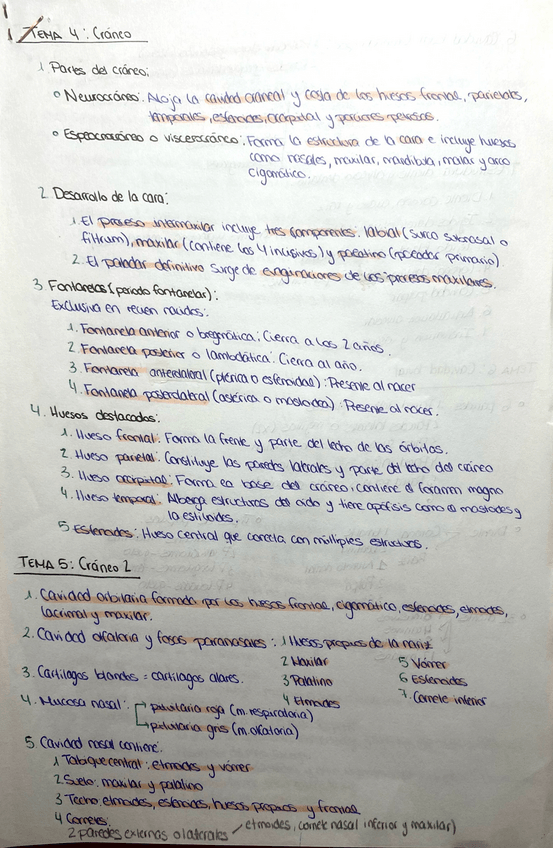 TEMA 4: Cráneo
1 Partes del cráneo:
• Neurocráneo: Aloja la cavidad craneal y costa de los huesos frontal, parietales,
temporales, esfenoides, occipital y porciones petrosas.
• Esplacnocráneo o viscerocráneo: Forma la estructura de la cara e incluye huesos
como nasales, maxilar, mandíbula, malar y arco
cigomático.
2 Desarrollo de la cara:
1. El proceso intermaxilar incluye tres componentes: labial (surco subnasal o
filtrum), maxilar (contiene los 4 incisivos) y palatino (paladar primario)
2. El paladar definitivo surge de evaginaciones de los procesos maxilares.
3. Fontanelas (periodo fontanelar):
Exclusiva en recien nacidos:
1. Fontanela anterior o bregmática: Cierra a los 2 años.
2 Fontanela posterior o lambdática: Cierra al año.
3. Fontanela anterolateral (ptérica o esfenoidal): Presente al nacer
4. Fontanela posterolateral (astérica o mastoidea): Presente al nacer.
4. Huesos destacados:
1. Hueso frontal: Forma la frente y parte del techo de las órbitas.
2. Hueso parietal: Constituye las paredes laterales y parte del techo del cráneo
3. Hueso occipital: Forma la base del cráneo, contiene el foramen magno
4. Hueso temporal: Alberga estructuras del oido y tiene apófisis como la mastoides y
la estiloides.
5 Esfenoides: Hueso central que conecta con múltiples estructuras.
TEMA 5: Cráneo 2
1. Cavidad orbitaria formada por los huesos frontal, cigomático, esfenoides, etmoides,
lacrimal y maxilar.
2. Cavidad olfatoria y fosas paranasales: 1 Huesos propios de la nariz
2 Maxilar 5 Vómer
3. Cartílagos blandos = cartílagos alares. 3 Palatino 6 Esfenoides
4 Etmoides 7. Cornete inferior
4. Mucosa nasal: pituitaria roja (m. respiratoria)
pituitaria gris (m. olfatoria)
5 Cavidad nasal contiene:
1 Tabique central: etmoides y vómer
2 Suelo: maxilar y palatino
3 Techo, etmoides, esfenoides, huesos propios y frontal
4 Cornetes:
2 paredes externas o laterales / etmoides, cornete nasal inferior y maxilar)